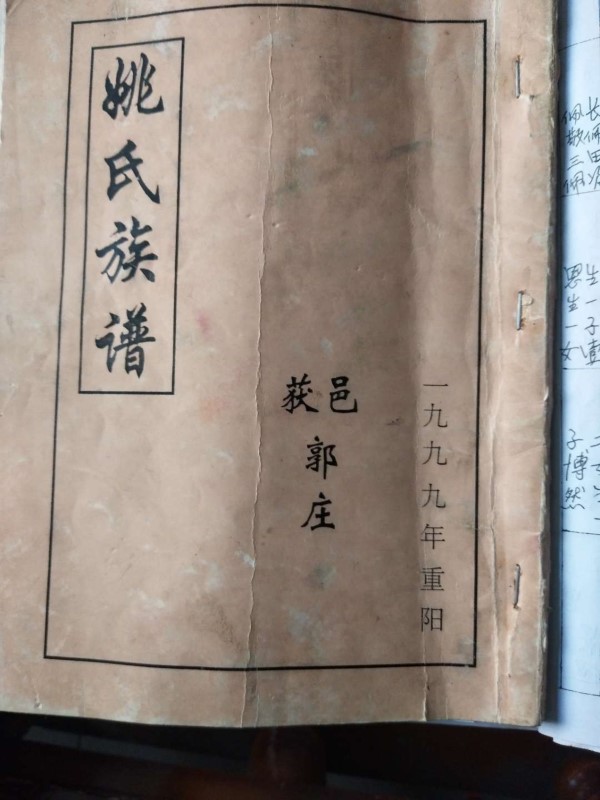 姚氏族谱
获邑
郭庄
一九九九年重阳
思生
生一
一子
子
博
然